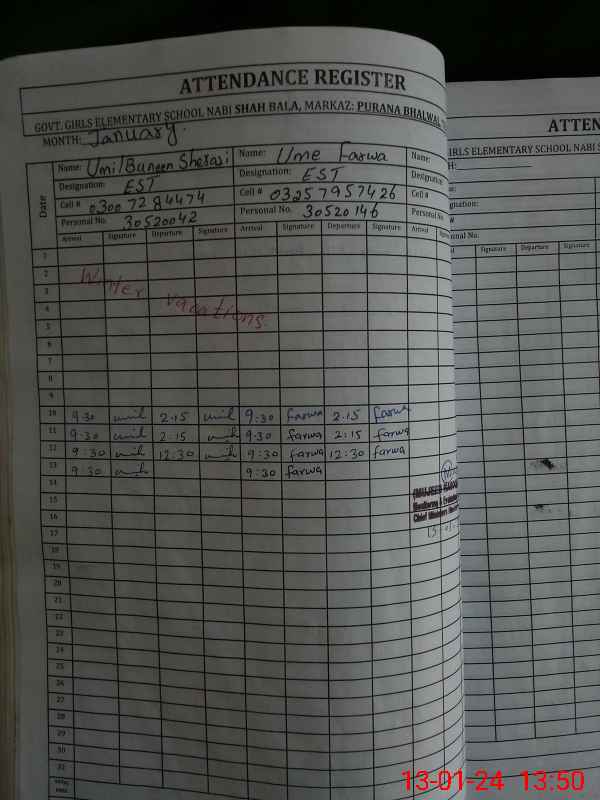 ATTENDANCE REGISTER
GOVT. GIRLS ELEMENTARY SCHOOL NABI SHAH BALA, MARKAZ: PURANA BHALWAL
MONTH: January.
Date
Name: Umil Baneen Sherazi Name: Ume Farwa Name:
Designation: EST Designation: EST Designation:
Cell # 03007284474 Cell # 03257957426 Cell #
Personal No. 30520042 Personal No. 30520146 Personal No.
Arrival Signature Departure Signature Arrival Signature Departure Signature Arrival
1
2
3 Winter vacations.
4
5
6
7
8
9
10 9:30 umil 2:15 umil 9:30 farwa 2:15 farwa
11 9:30 umil 2:15 umil 9:30 farwa 2:15 farwa
12 9:30 umil 12:30 umil 9:30 farwa 12:30 farwa
13 9:30 umil 9:30 farwa
14
15
16
17
18
19
20
21
22
23
24
25
26
27
28
29
30
31
ATTEN
IRLS ELEMENTARY SCHOOL NABI S
H:
gnation:
#
onal No.
Signature Departure Signature
13-01-24 13:50